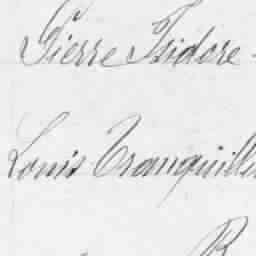 Pierre Isidore
Louis Tranquille